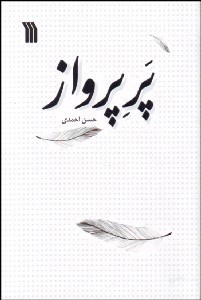 پَرِ پرواز
حسن احمدی